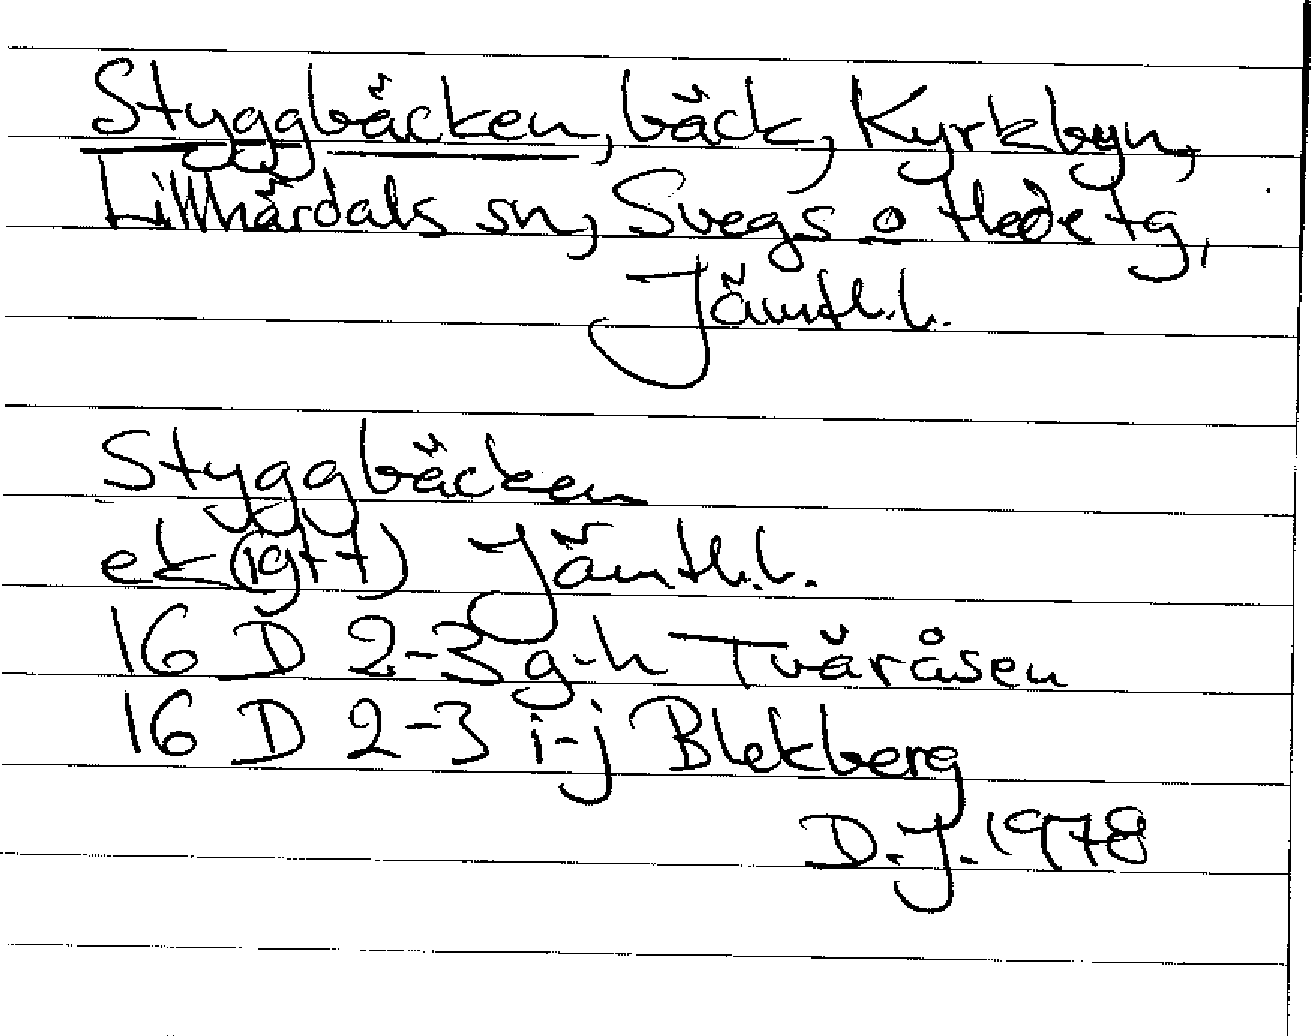 Styggbäcken, bäck, Kyrkbyn,
Lillhärdals sn, Svegs o Hede tg,
Jämtl.l.
Styggbäcken
ek(igtt) Jämtl.l.
16 D 2-3 g-h Tväråsen
16 D 2-3 i-j Blekberg
D.J. 1978